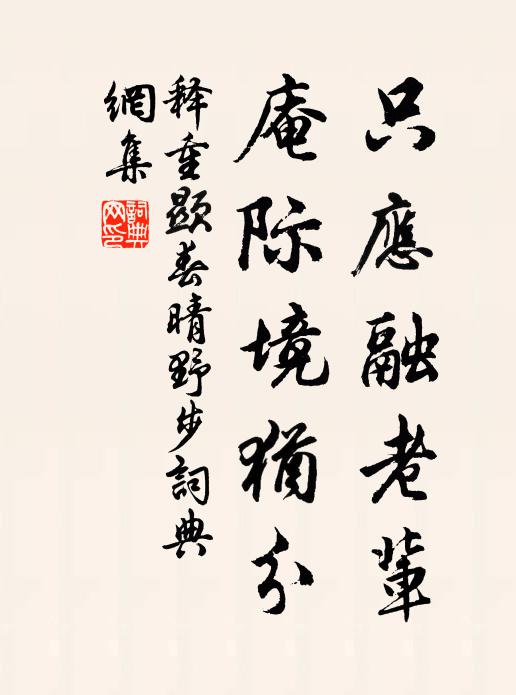 只應融老輩
庵际境猶分
释重顯春晴野步詞典
網集
詞典網印